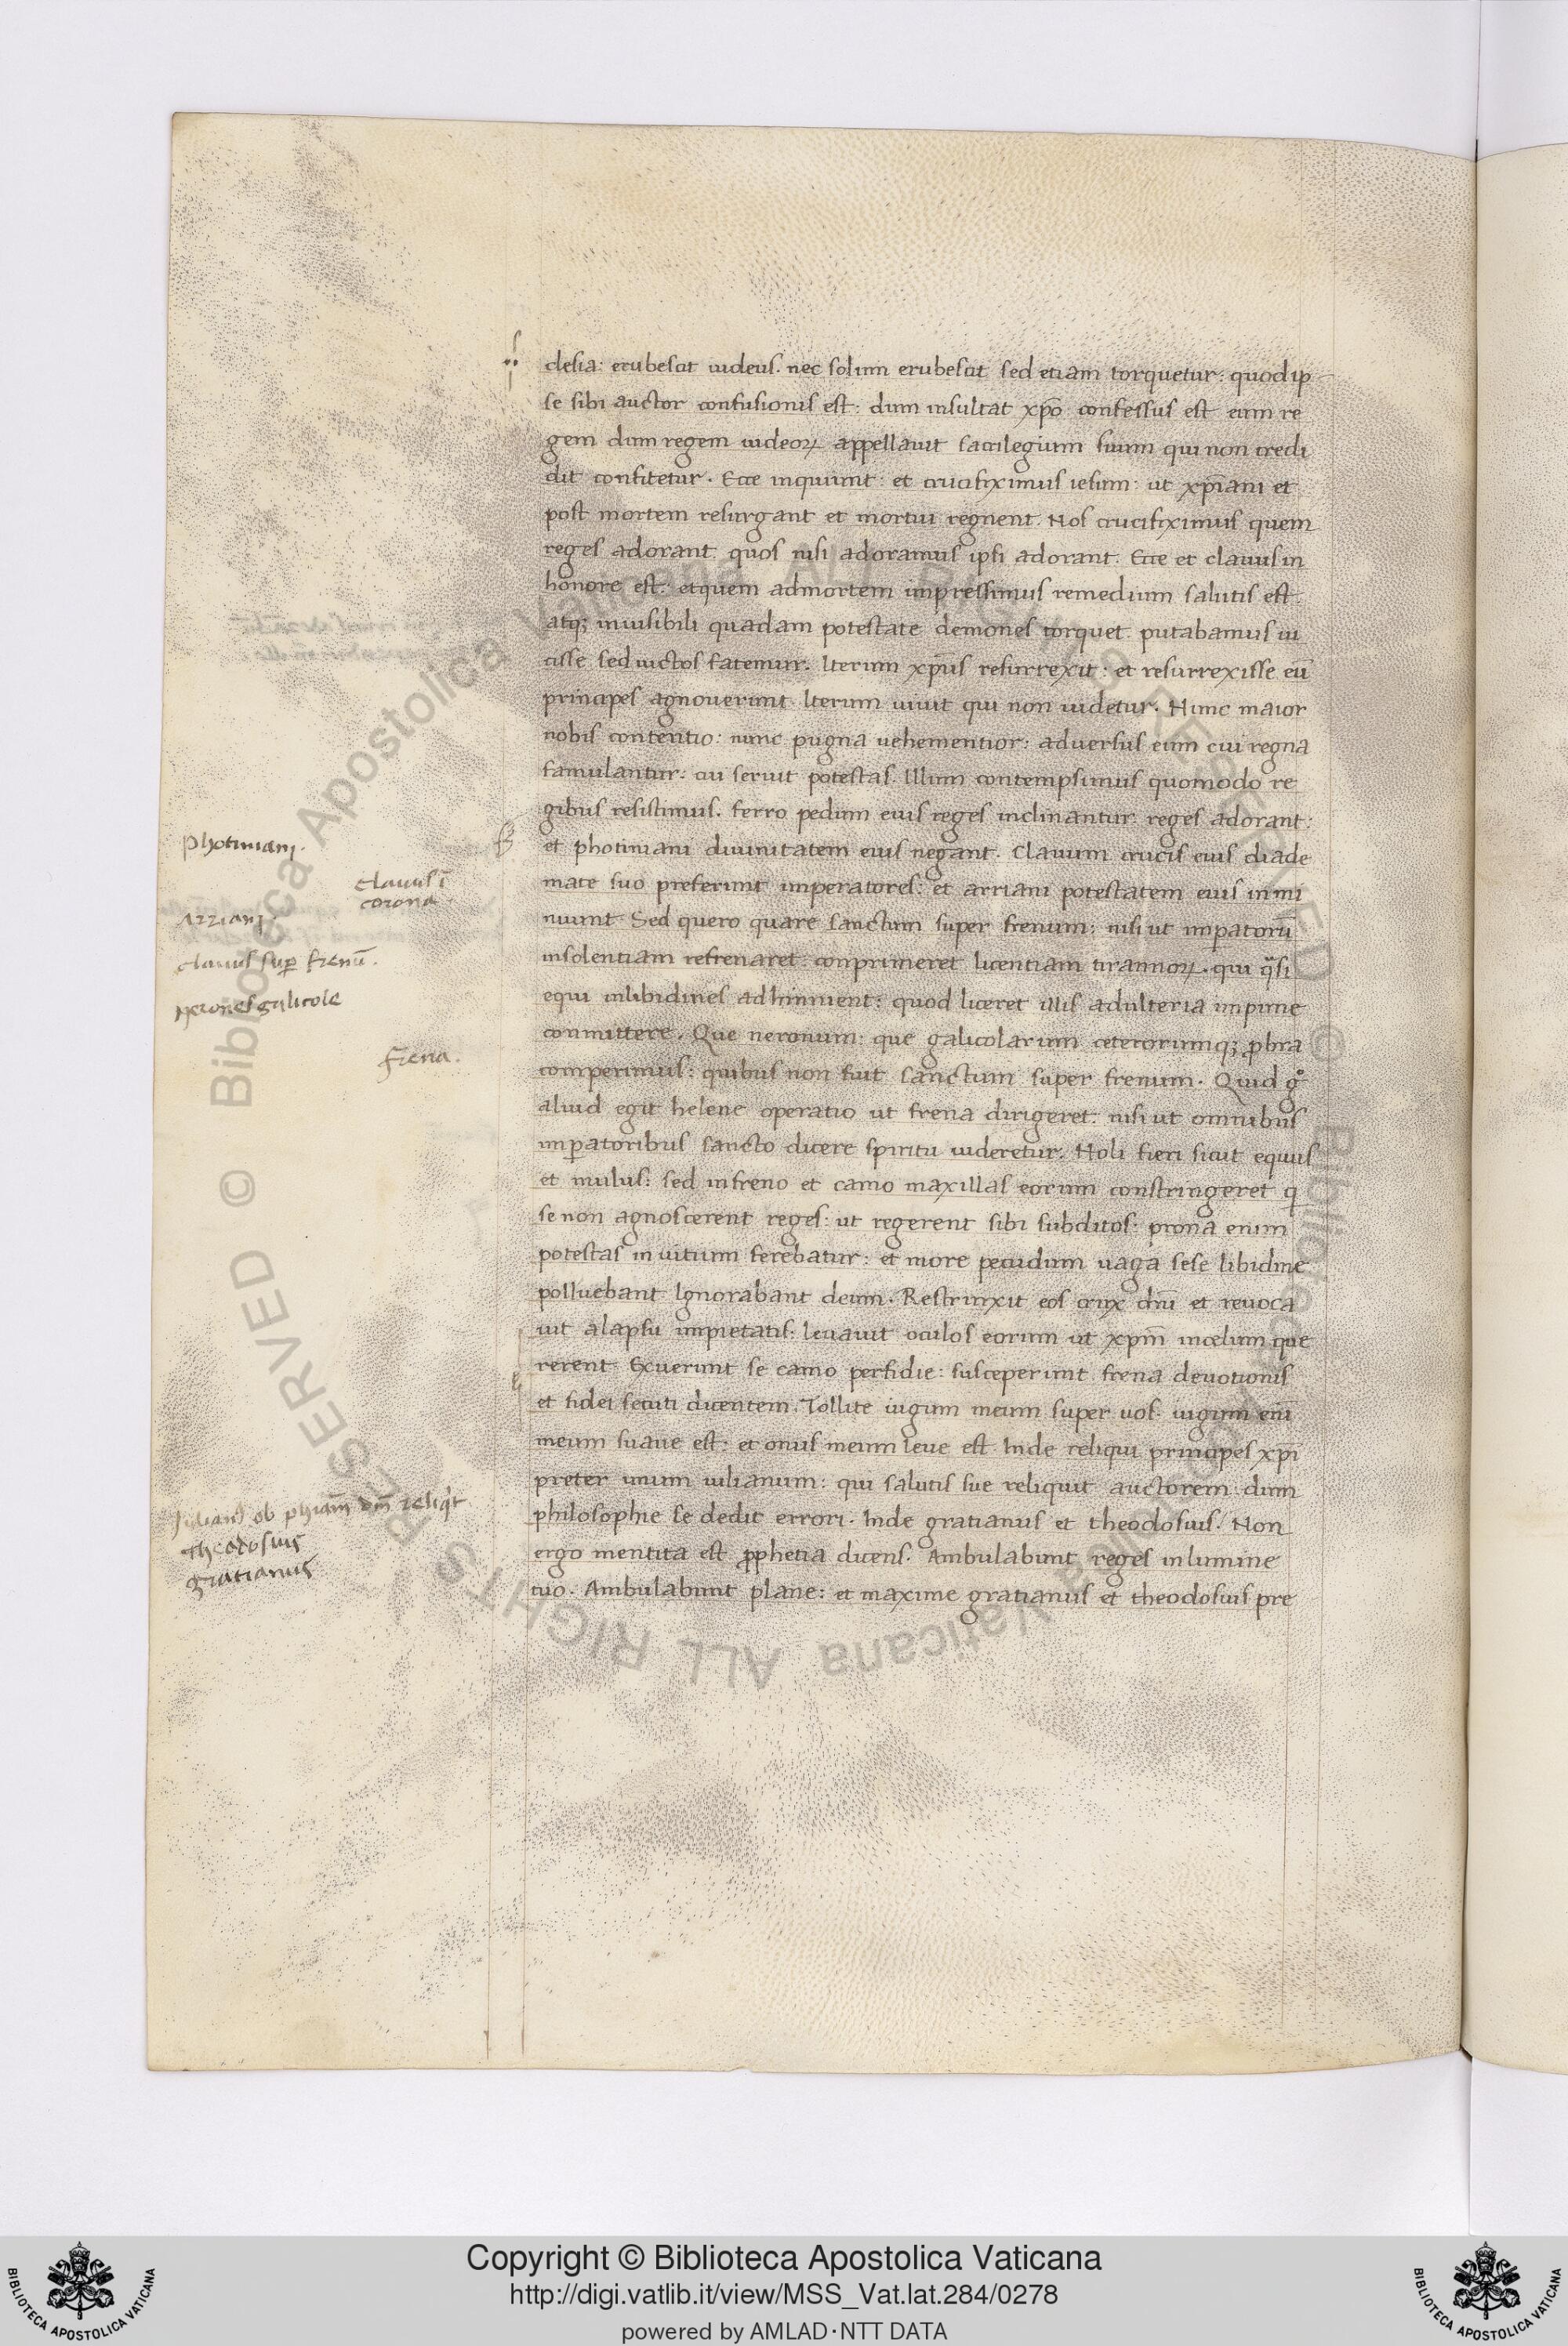 clesia: erubescit iudeus. nec solum erubescit sed etiam torquetur: quod ip
se sibi auctor confusionis est: dum insultat xp̄o confessus est eum re
gem dum regem iudeoꝝ appellavit sacrilegium suum qui non credi
dit confitetur. Ecce inquiunt: et crucifiximus iesum: ut xp̄iani et
post mortem resurgant et mortui regnent. Nos crucifiximus quem
reges adorant. quos nisi adoramus ipsi adorant. Ecce et clavus in
honore est: et quem admortem impressimus remedium salutis est
atq; invisibili quadam potestate demones torquet. putabamus ui
cisse sed uictos fatemur. Iterum xp̄us resurrexit: et resurrexisse eū
principes agnoverunt. Iterum vivit qui non videtur. Nunc maior
nobis contentio: nunc pugna uehementior: adversus eum cui regna
famulantur: cui servit potestas. Illum contempsimus quomodo re
gibus resistimus. ferro pedum eius reges inclinantur: reges adorant:
et photiniani divinitatem eius negant. Clavum crucis eius diade
mate suo preferunt imperatores: et arriani potestatem eius inmi
nuunt. Sed quero quare sanctum super frenum: nisi ut imꝑatorū
insolentiam refrenaret: conprimeret licentiam tirannoꝝ. qui q̄si
equi inlibidines adhinnient: quod liceret illis adulteria impune
conmittere. Que neronum: que galicolarum ceterorumq; ꝓbra
comperimus: quibus non fuit sanctum super frenum. Quid gͦ
aliud egit helene operatio ut frena dirigeret: nisi ut omnibus
imꝑatoribus sancto dicere spiritu videretur. Noli fieri sicut equus
et mulus: sed infreno et camo maxillas eorum constringeret q
se non agnoscerent reges: ut regerent sibi subditos: prona enim
potestas in vitium ferebatur: et more pecudum uaga sese libidine
polluebant. Ignorabant deum. Restrinxit eos crux dn̄i et revoca
vit alapsu impietatis: levavit oculos eorum ut xp̄m incelum que
rerent. Exuerunt se camo perfidie: susceperunt frena devotionis
et fidei secuti dicentem. Tollite iugum meum super uos. iugum eni̅
meum suave est: et onus meum leve est. Inde reliqui principes xp̄i
preter unum iulianum: qui salutis sue reliquit auctorem: dum
philosophie se dedit errori. Inde gratianus et theodosius. Non
ergo mentita est ꝓphetia dicens. Ambulabunt reges inlumine
tuo. Ambulabunt plane: et maxime gratianus et theodosius pre
photiniani.
clavus ī
corona.
Arriani.
clavus suꝑ frenū.
nerones galicole
frena.
Iulianꝰ ob ph̄iam dm̄ reliqͥt
Theodosius
gratianus
Copyright © Biblioteca Apostolica Vaticana
http://digi.vatlib.it/view/MSS_Vat.lat.284/0278
powered by AMLAD·NTT DATA
BIBLIOTECA APOSTOLICA VATICANA
BIBLIOTECA APOSTOLICA VATICANA
© Biblioteca Apostolica Vaticana ALL RIGHTS RESERVED
© Biblioteca Apostolica Vaticana ALL RIGHTS RESERVED